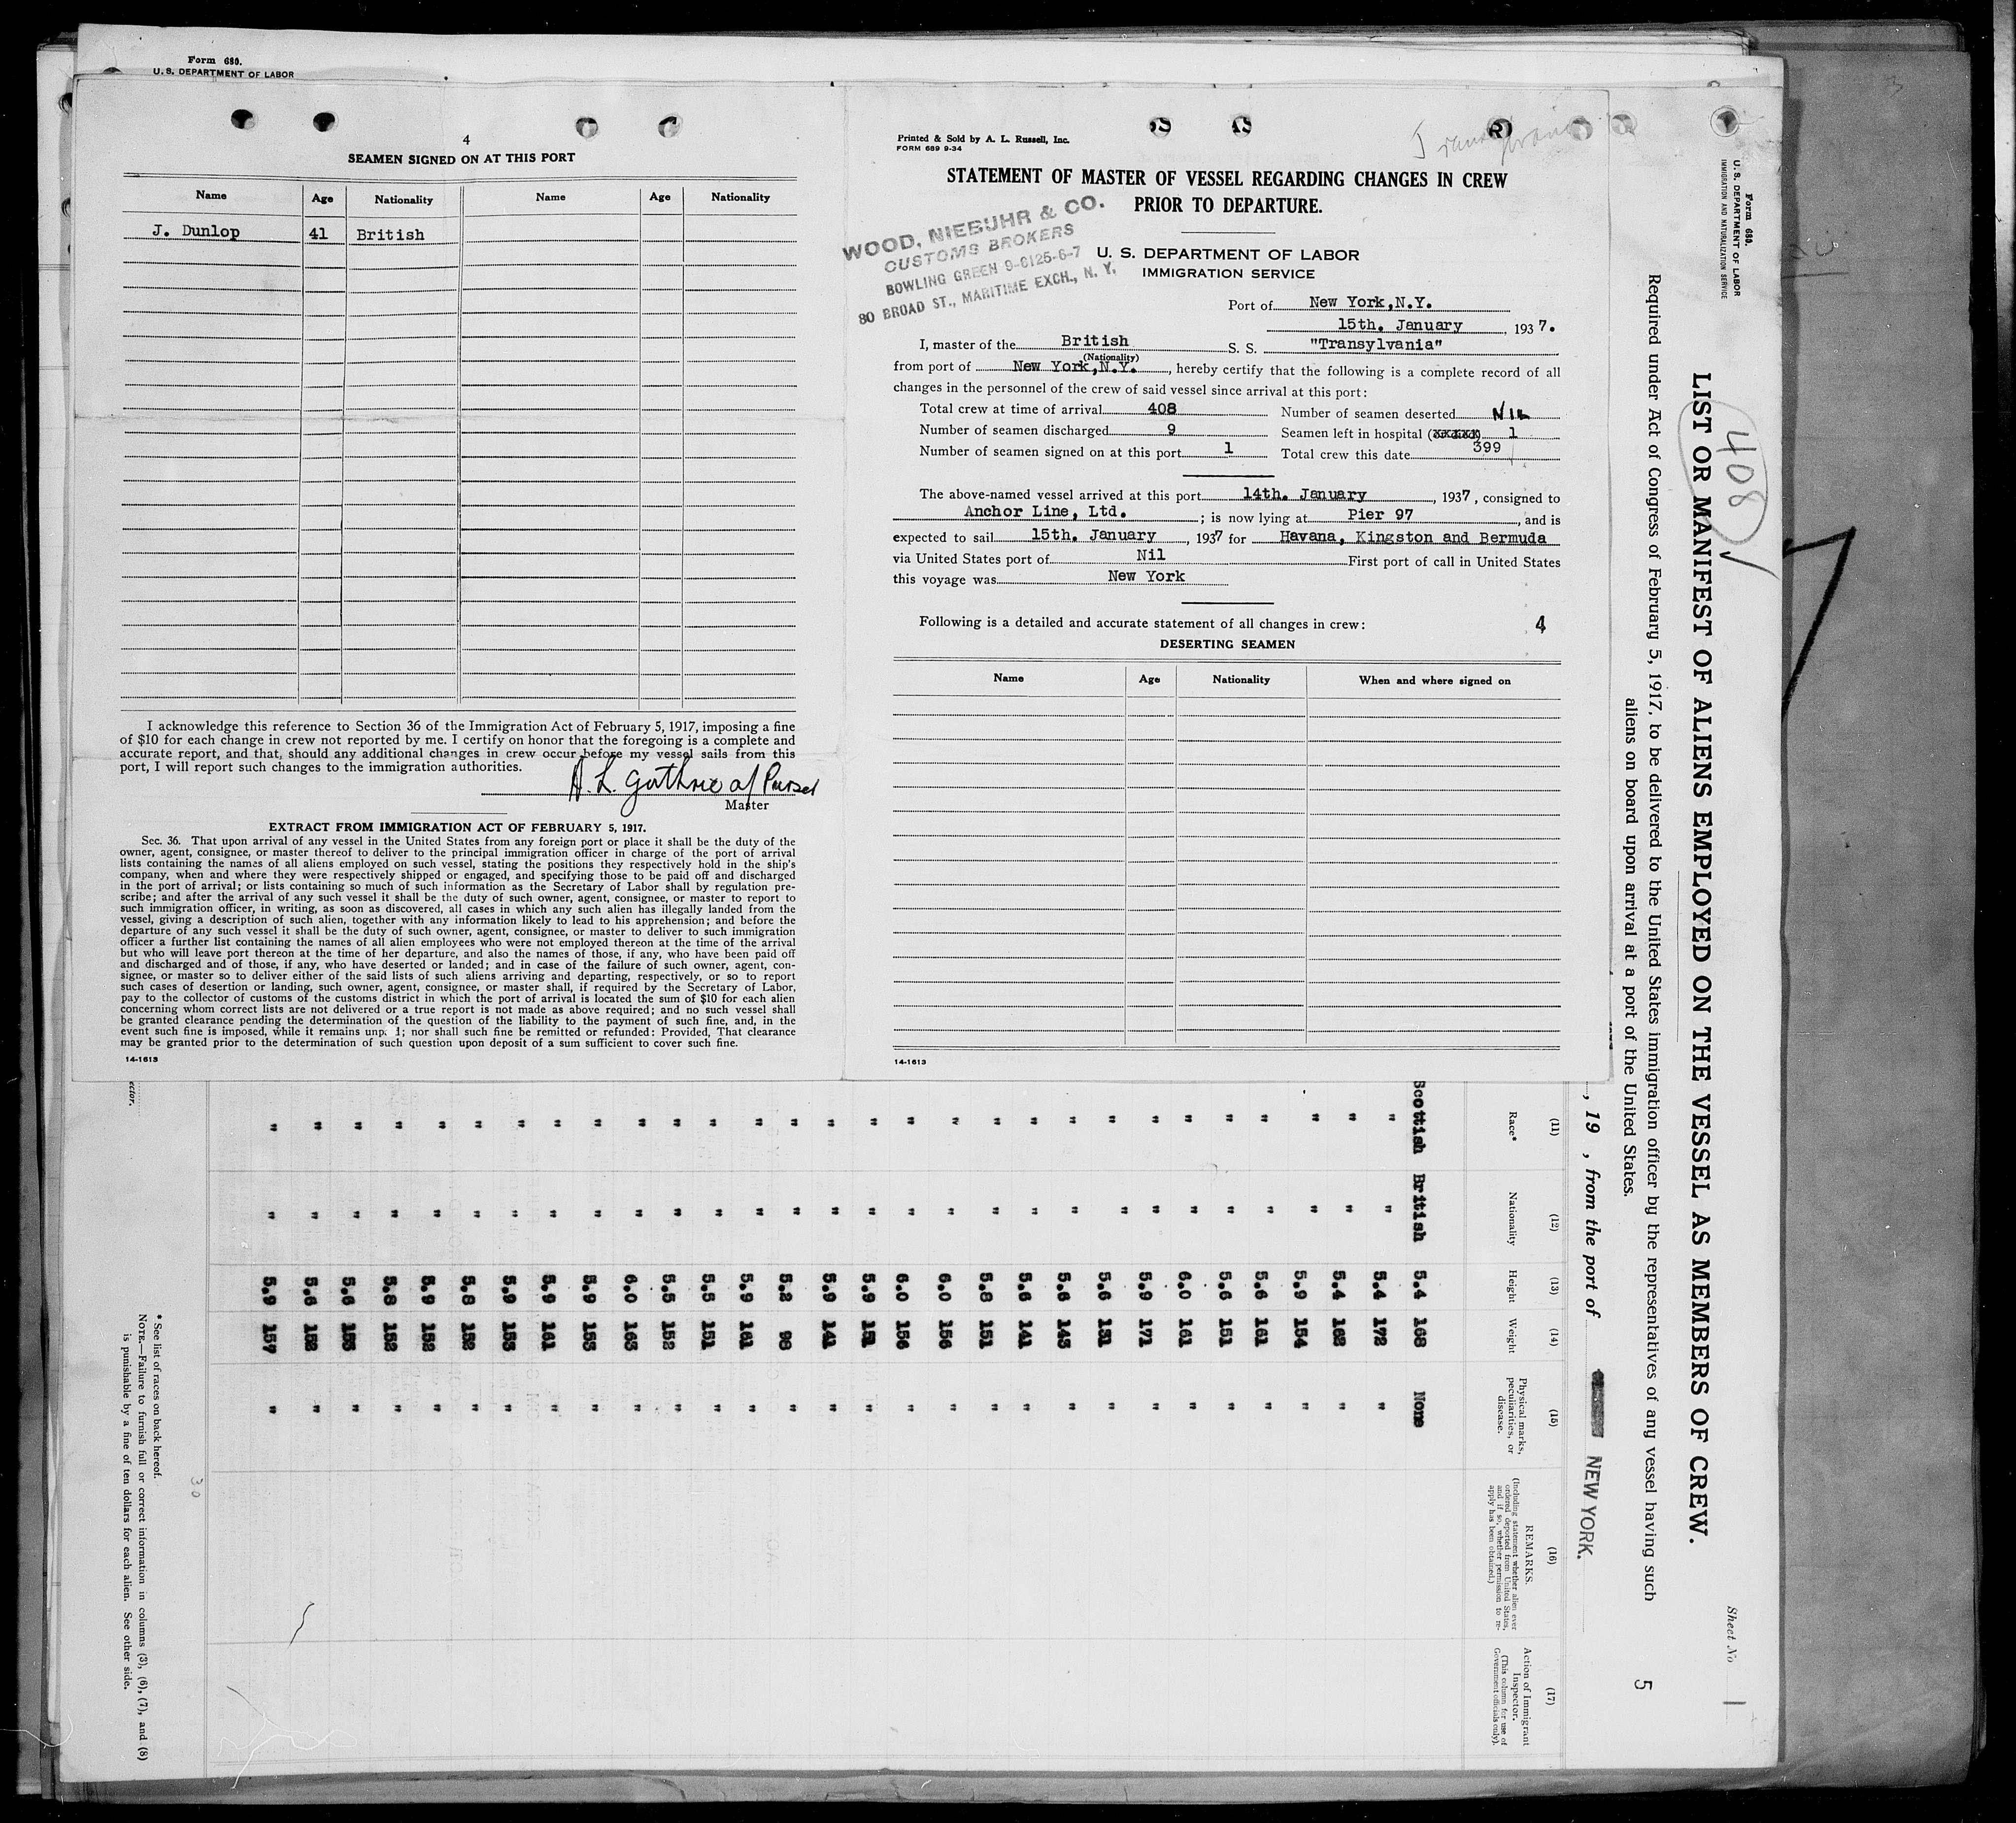 Form 680.
U. S. DEPARTMENT OF LABOR
4
SEAMEN SIGNED ON AT THIS PORT
Name Age Nationality Name Age Nationality
J. Dunlop 41 British
I acknowledge this reference to Section 36 of the Immigration Act of February 5, 1917, imposing a fine
of $10 for each change in crew not reported by me. I certify on honor that the foregoing is a complete and
accurate report, and that, should any additional changes in crew occur before my vessel sails from this
port, I will report such changes to the immigration authorities.
A. L. Guthrie a/ Purser
Master
EXTRACT FROM IMMIGRATION ACT OF FEBRUARY 5, 1917.
Sec. 36. That upon arrival of any vessel in the United States from any foreign port or place it shall be the duty of the
owner, agent, consignee, or master thereof to deliver to the principal immigration officer in charge of the port of arrival
lists containing the names of all aliens employed on such vessel, stating the positions they respectively hold in the ship's
company, when and where they were respectively shipped or engaged, and specifying those to be paid off and discharged
in the port of arrival; or lists containing so much of such information as the Secretary of Labor shall by regulation pre-
scribe; and after the arrival of any such vessel it shall be the duty of such owner, agent, consignee, or master to report to
such immigration officer, in writing, as soon as discovered, all cases in which any such alien has illegally landed from the
vessel, giving a description of such alien, together with any information likely to lead to his apprehension; and before the
departure of any such vessel it shall be the duty of such owner, agent, consignee, or master to deliver to such immigration
officer a further list containing the names of all alien employees who were not employed thereon at the time of the arrival
but who will leave port thereon at the time of her departure, and also the names of those, if any, who have been paid off
and discharged and of those, if any, who have deserted or landed; and in case of the failure of such owner, agent, con-
signee, or master so to deliver either of the said lists of such aliens arriving and departing, respectively, or so to report
such cases of desertion or landing, such owner, agent, consignee, or master shall, if required by the Secretary of Labor,
pay to the collector of customs of the customs district in which the port of arrival is located the sum of $10 for each alien
concerning whom correct lists are not delivered or a true report is not made as above required; and no such vessel shall
be granted clearance pending the determination of the question of the liability to the payment of such fine, and, in the
event such fine is imposed, while it remains unp. 1; nor shall such fine be remitted or refunded: Provided, That clearance
may be granted prior to the determination of such question upon deposit of a sum sufficient to cover such fine.
14-1613
Printed & Sold by A. L. Russell, Inc.
FORM 689 9-34
Transylvania
STATEMENT OF MASTER OF VESSEL REGARDING CHANGES IN CREW
PRIOR TO DEPARTURE.
WOOD, NIEBUHR & CO.
CUSTOMS BROKERS
BOWLING GREEN 9-6125-6-7
80 BROAD ST., MARITIME EXCH., N. Y.
U. S. DEPARTMENT OF LABOR
IMMIGRATION SERVICE
Port of New York,N.Y.
15th. January, 1937.
I, master of the British S. S. "Transylvania"
(Nationality)
from port of New York,N.Y., hereby certify that the following is a complete record of all
changes in the personnel of the crew of said vessel since arrival at this port:
Total crew at time of arrival 408 Number of seamen deserted NIL
Number of seamen discharged 9 Seamen left in hospital ( ) 1
Number of seamen signed on at this port 1 Total crew this date 399
The above-named vessel arrived at this port 14th. January, 1937, consigned to
Anchor Line, Ltd. ; is now lying at Pier 97, and is
expected to sail 15th. January, 1937 for Havana, Kingston and Bermuda
via United States port of Nil First port of call in United States
this voyage was New York
Following is a detailed and accurate statement of all changes in crew: 4
DESERTING SEAMEN
Name Age Nationality When and where signed on
14-1613
Form 680.
U. S. DEPARTMENT OF LABOR
IMMIGRATION AND NATURALIZATION SERVICE
Sheet No 1
408
LIST OR MANIFEST OF ALIENS EMPLOYED ON THE VESSEL AS MEMBERS OF CREW.
Required under Act of Congress of February 5, 1917, to be delivered to the United States immigration officer by the representatives of any vessel having such
aliens on board upon arrival at a port of the United States.
5
, 19 , from the port of NEW YORK.
(11) (12) (13) (14) (15) (16) (17)
Race* Nationality Height Weight Physical marks, peculiarities, or disease. REMARKS. (Including statement whether alien ever ordered deported from United States, and if so, whether permission to re-apply has been obtained.) Action of Immigrant Inspector. (This column for use of Government officials only).
Scottish British 5.4 168 None
" " 5.4 172 "
" " 5.4 162 "
" " 5.9 154 "
" " 5.6 161 "
" " 5.6 151 "
" " 6.0 161 "
" " 5.9 171 "
" " 5.6 131 "
" " 5.6 143 "
" " 5.6 141 "
" " 5.8 151 "
" " 6.0 156 "
" " 6.0 156 "
" " 5.9 151 "
" " 5.9 141 "
" " 5.2 98 "
" " 5.9 161 "
" " 5.5 151 "
" " 5.5 152 "
" " 6.0 163 "
" " 5.9 153 "
" " 5.9 161 "
" " 5.9 153 "
" " 5.8 152 "
" " 5.9 152 "
" " 5.8 152 "
" " 5.6 153 "
" " 5.6 152 "
" " 5.9 157 "
30
* See list of races on back hereof.
NOTE.—Failure to furnish full or correct information in columns (3), (6), (7), and (8)
is punishable by a fine of ten dollars for each alien. See other side.